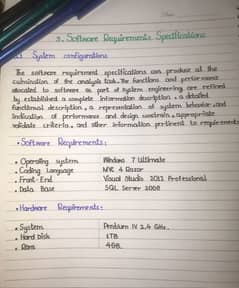 3. Software Requirements Specifications
System configurations
The software requirement specifications can produce at the
culmination of the analysis task. The function and performance
allocated to software as part of system engineering are refined
by established a complete information description, a detailed
functional description, a representation of system behavior, and
indication of performance and design constrain, appropriate
validate criteria, and other information pertinent to requirements
• Software Requirements:
• Operating system Windows 7 Ultimate
• Coding Language MVC 4 Razor
• Front-End Visual Studio 2012 Professional
• Data Base SQL Server 2008
• Hardware Requirements:
• System Pentium IV 2.4 GHz.
• Hard Disk 1TB
• Ram 4GB.